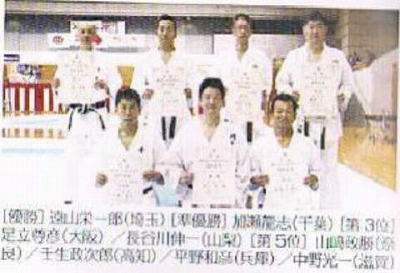 [優勝] 遠山栄一郎(埼玉) [準優勝] 加瀬龍志(千葉) [第3位]
足立尊彦(大阪) ／長谷川伸一(山梨) [第5位] 山崎政勝(奈
良) ／壬生政次郎(高知) ／平野和彦(兵庫) ／中野光一(滋賀)